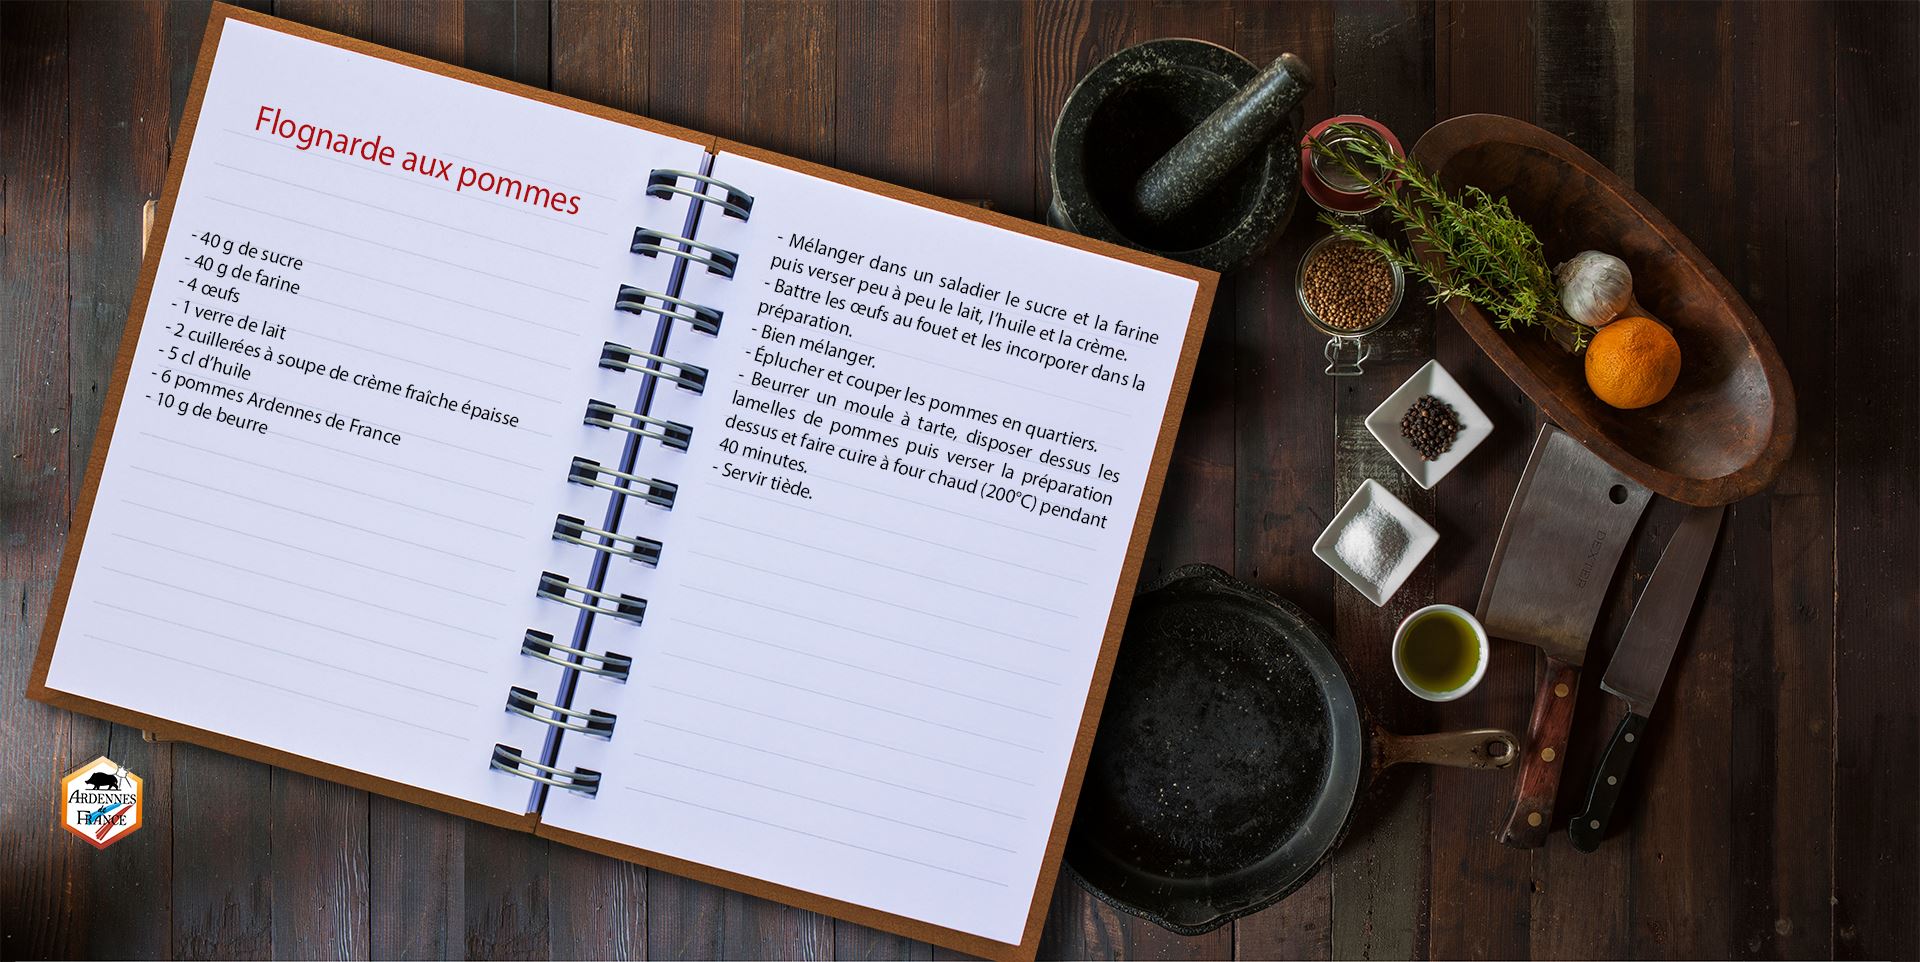 Flognarde aux pommes
- 40 g de sucre
- 40 g de farine
- 4 œufs
- 1 verre de lait
- 2 cuillerées à soupe de crème fraîche épaisse
- 5 cl d’huile
- 6 pommes Ardennes de France
- 10 g de beurre
- Mélanger dans un saladier le sucre et la farine
puis verser peu à peu le lait, l’huile et la crème.
- Battre les œufs au fouet et les incorporer dans la
préparation.
- Bien mélanger.
- Éplucher et couper les pommes en quartiers.
- Beurrer un moule à tarte, disposer dessus les
lamelles de pommes puis verser la préparation
dessus et faire cuire à four chaud (200°C) pendant
40 minutes.
- Servir tiède.
DEXTER
ARDENNES
de
FRANCE